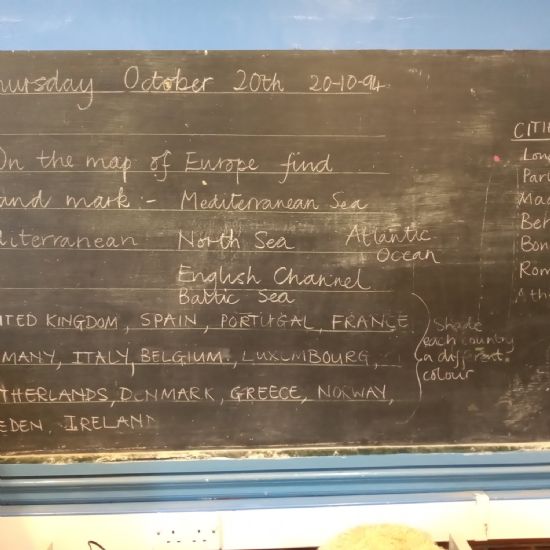 hursday October 20th 20-10-94
On the map of Europe find
and mark:- Mediterranean Sea
diterranean North Sea Atlantic Ocean
English Channel
Baltic Sea
ITED KINGDOM, SPAIN, PORTUGAL, FRANCE
MANY, ITALY, BELGIUM, LUXEMBOURG,
THERLANDS, DENMARK, GREECE, NORWAY,
EDEN, IRELAND
Shade
each country
a different
colour
CITIE
Lon
Pari
Mad
Ber
Bon
Rom
Ath